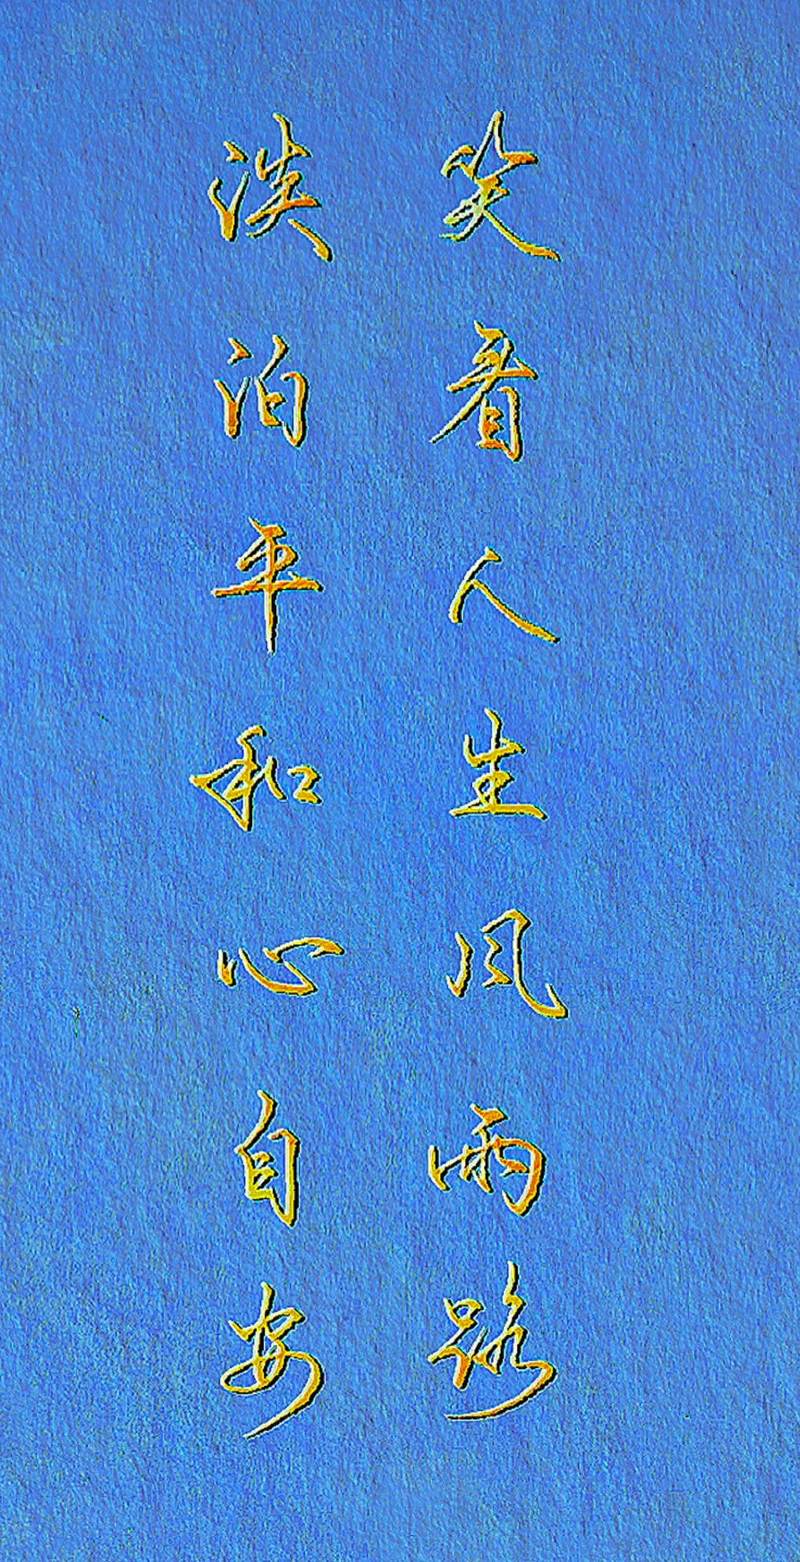 笑看人生风雨路
淡泊平和心自安